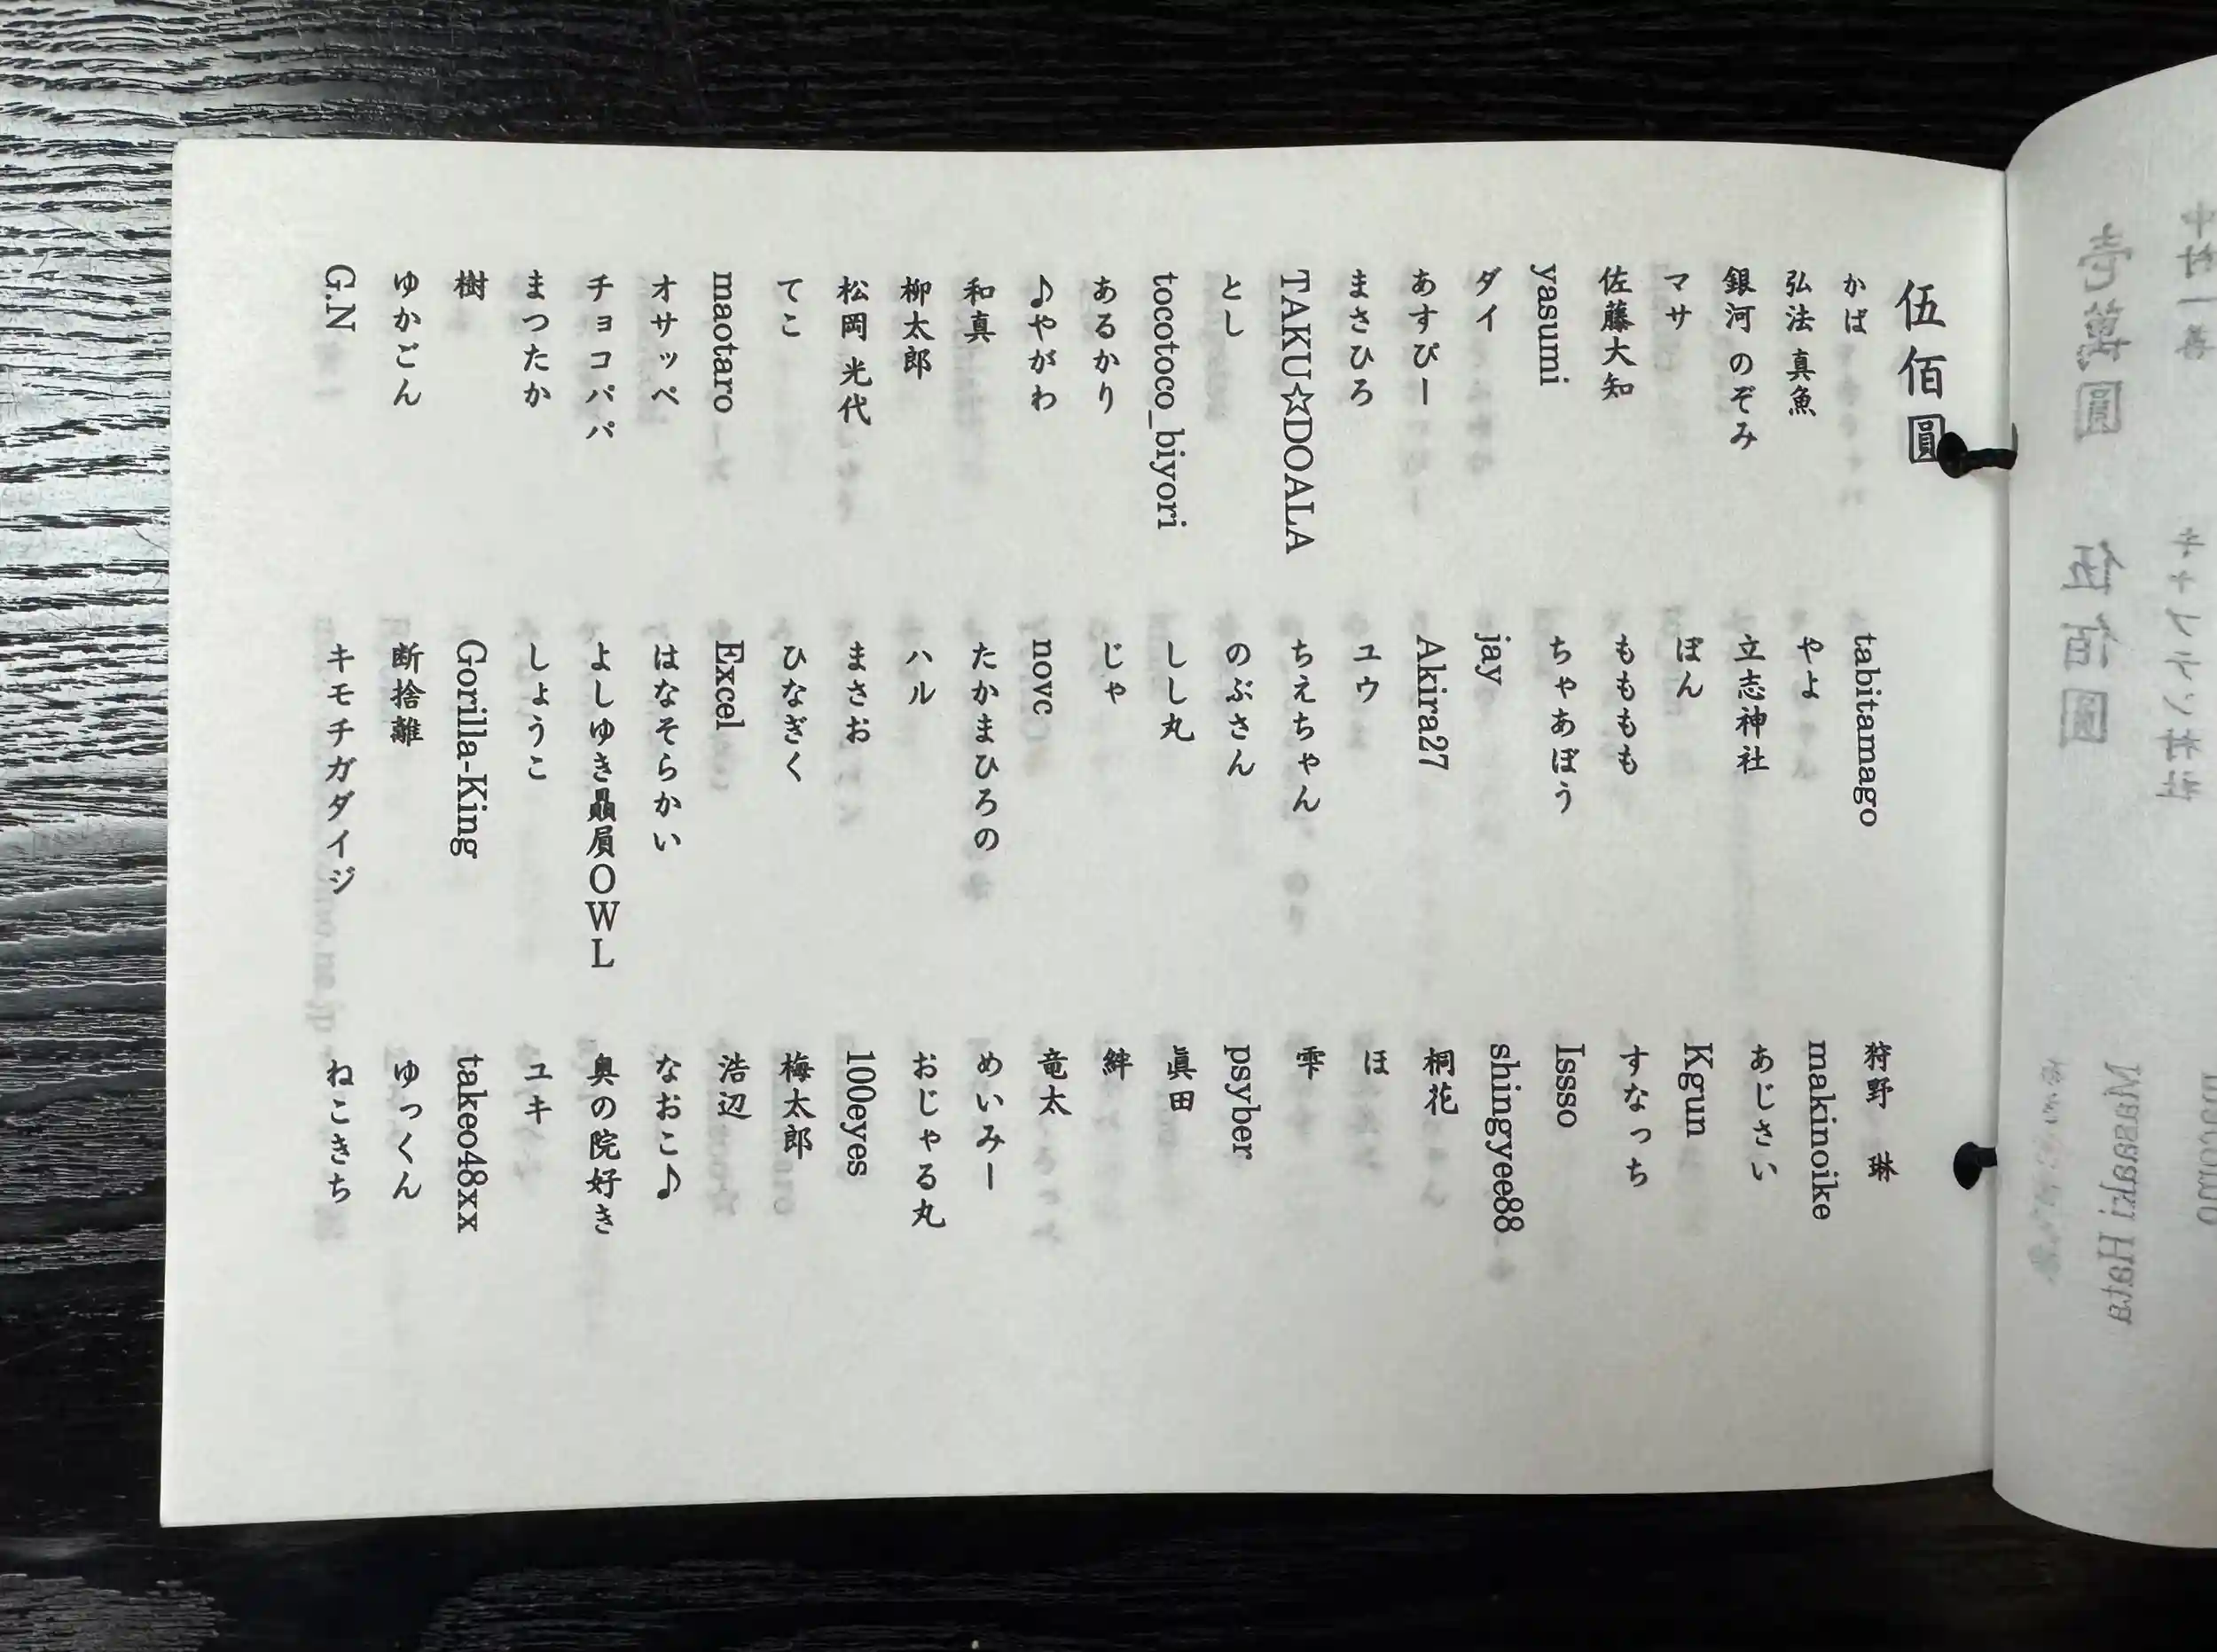 伍佰圓
かば
弘法 真魚
銀河 のぞみ
マサ
佐藤大知
yasumi
ダイ
あすぴー
まさひろ
TAKU☆DOALA
とし
tocotoco_biyori
あるかり
♪やがわ
和真
柳太郎
松岡 光代
てこ
maotaro
オサッペ
チョコパパ
まつたか
樹
ゆかごん
G.N
tabitamago
やよ
立志神社
ぽん
もももも
ちゃあぼう
jay
Akira27
ユウ
ちえちゃん
のぶさん
しし丸
じゃ
novc
たかまひろの
ハル
まさお
ひなぎく
Excel
はなそらかい
よしゆき贔屓OWL
しょうこ
Gorilla-King
断捨離
キモチガダイジ
狩野 琳
makinoike
あじさい
Kgun
すなっち
Issso
shingyee88
桐花
ほ
雫
psyber
眞田
絆
竜太
めいみー
おじゃる丸
100eyes
梅太郎
浩辺
なおこ♪
奥の院好き
ユキ
takeo48xx
ゆっくん
ねこきち